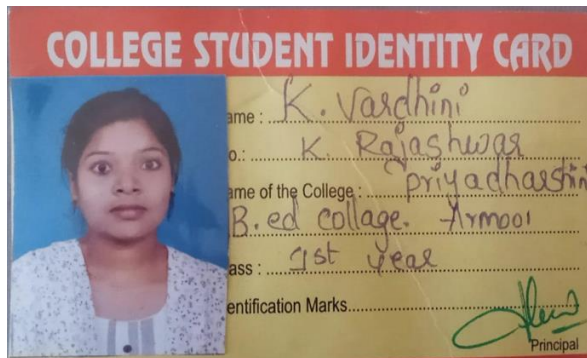 COLLEGE STUDENT IDENTITY CARD
ame : K. Vardhini
o.: K. Rajashwar
ame of the College : priyadharshini
B.ed collage. Armoor
ass : 1st year
entification Marks
Principal